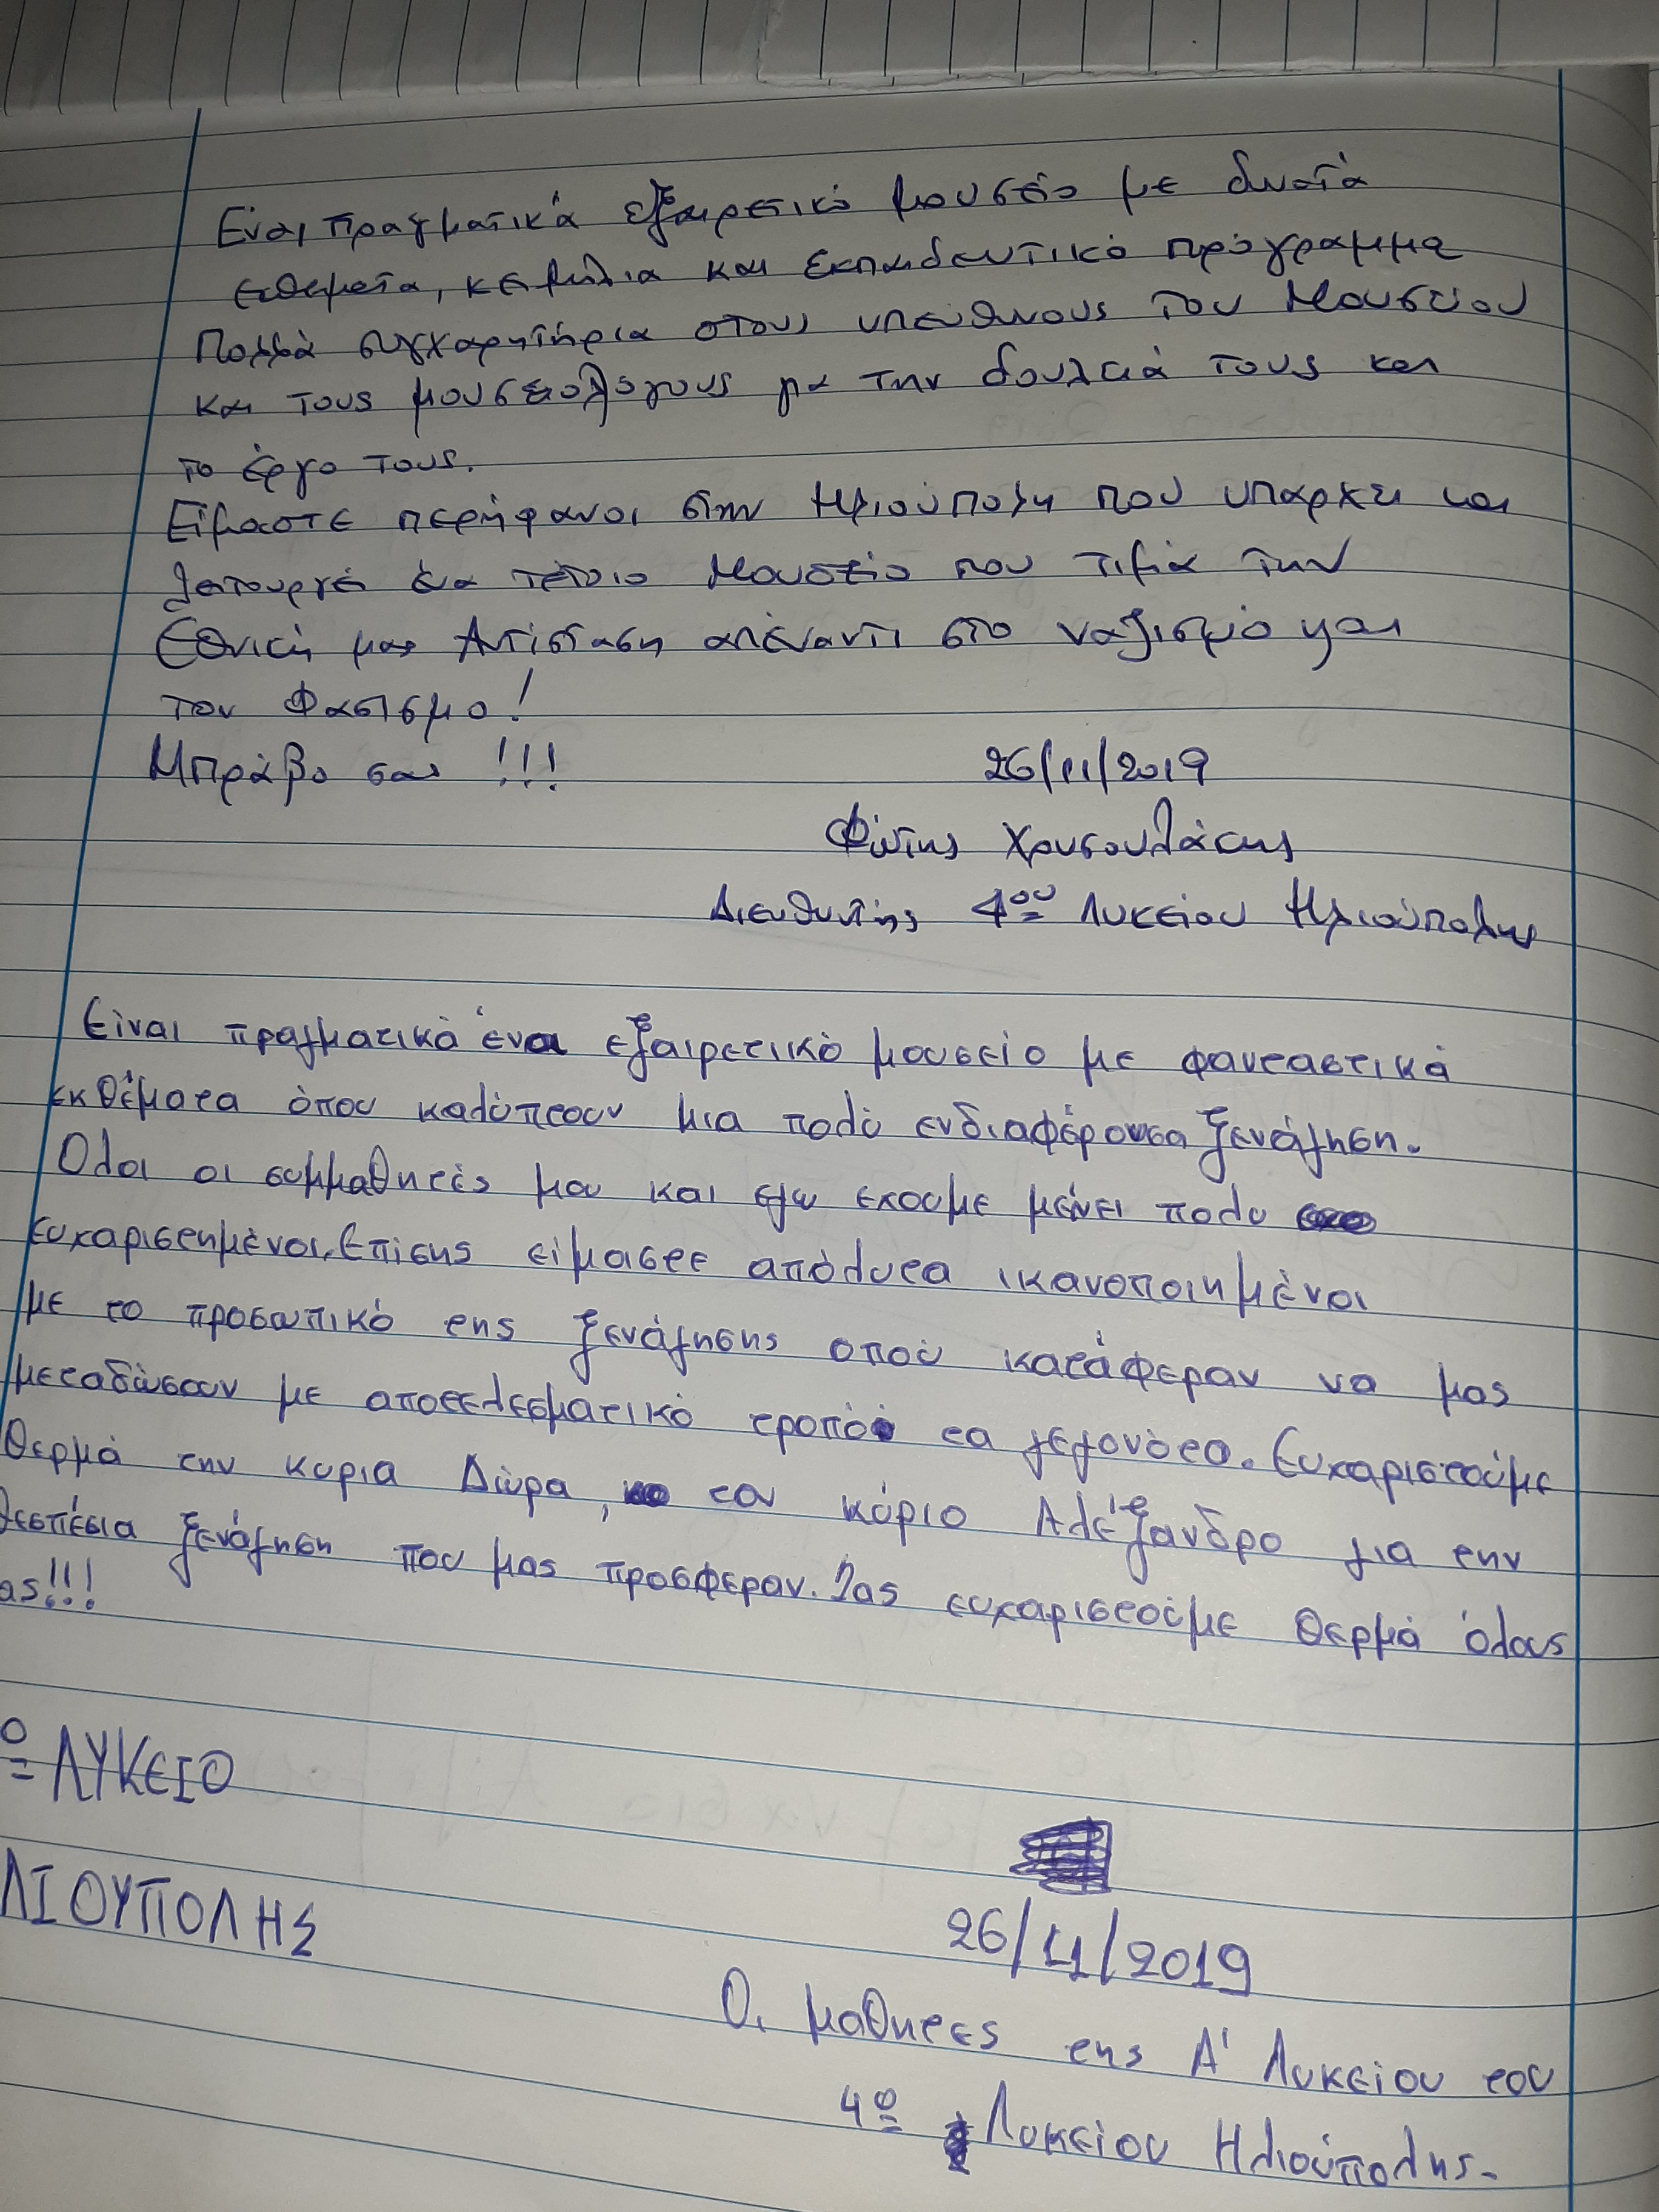 Είναι πραγματικά εξαιρετικό μουσείο με δυνατά
εκθέματα, κειμήλια και εκπαιδευτικό πρόγραμμα
Πολλά συγχαρητήρια στους υπεύθυνους του Μουσείου
και τους μουσειολόγους για την δουλειά τους και
το έργο τους.
Είμαστε περήφανοι στην Ηλιούπολη που υπάρχει και
λειτουργεί ένα τέτοιο Μουσείο που τιμά την
Εθνική μας Αντίσταση απέναντι στο ναζισμό και
τον Φασισμο!
Μπράβο σας !!!
26/11/2019
Φώτης Χρυσουλάκης
Διευθυντής 4ου Λυκείου Ηλιούπολης
Είναι πραγματικά ένα εξαιρετικό μουσείο με φανταστικά
εκθέματα όπου καλύπτουν μια πολύ ενδιαφέρουσα ξενάγηση.
Ολοι οι συμμαθητές μου και εγω εχουμε μένει πολυ
ευχαριστημένοι. Επίσης είμαστε απόλυτα ικανοποιημένοι
με το προσωπικό της ξενάγησης οπού κατάφεραν να μας
μεταδώσουν με αποτελεσματικό τροπό τα γεγονότα. Ευχαριστούμε
θερμά την κυρια Δώρα, τον κύριο Αλέξανδρο για την
θεσπέσια ξενάγηση που μας προσφεραν. Σας ευχαριστούμε θερμά όλους
ας!!!
ο ΛΥΚΕΙΟ
ΛΙΟΥΠΟΛΗΣ
26/11/2019
Οι μαθητες της Α' Λυκείου του
4ο Λυκείου Ηλιούπολης.